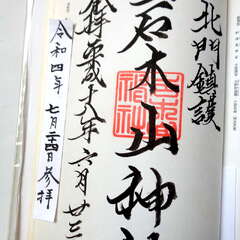 北門鎮護
岩木山神社
奉拝 平成十八年六月廿三
令和四年 七月二十四日参拝